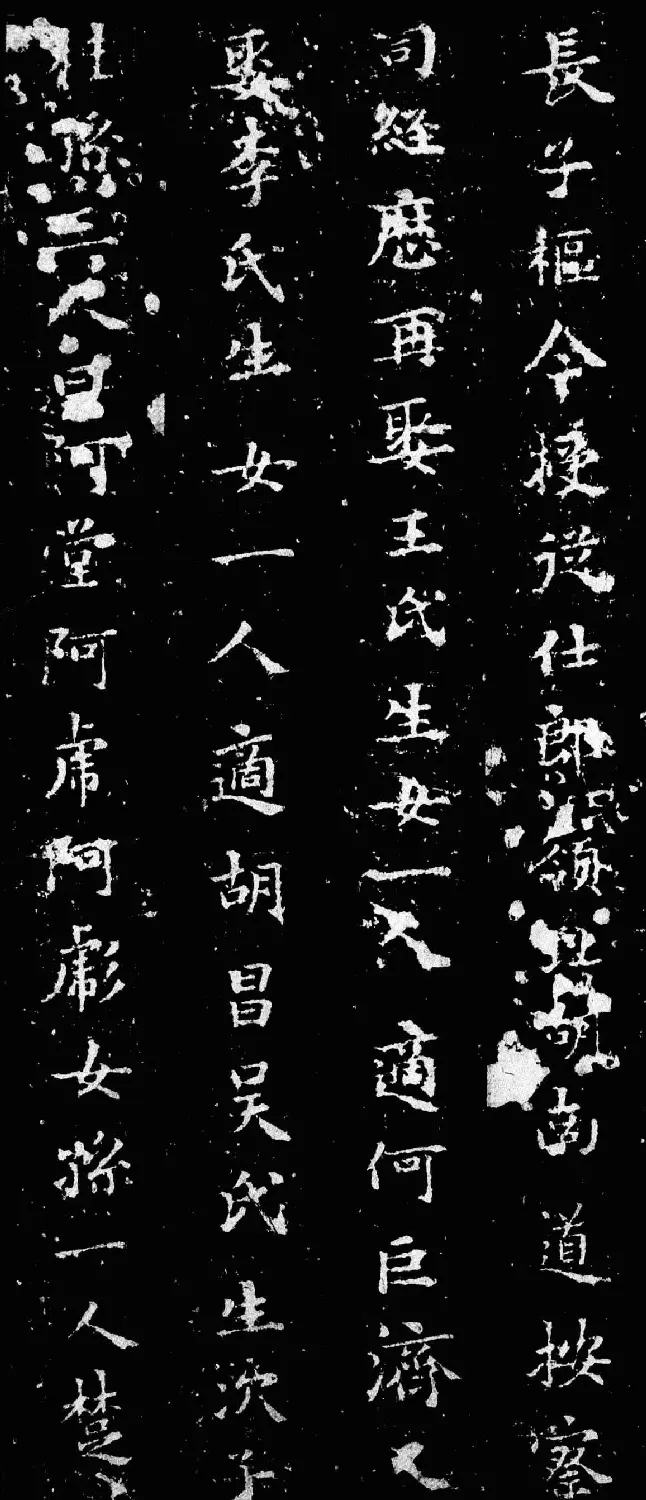 長子樞今授從仕郎領江胡南道按察
司經歷再娶王氏生女一人適何巨濟又
娶李氏生女一人適胡昌吴氏生次子
杜孫六人曰阿堂阿虎阿彪女孫一人楚